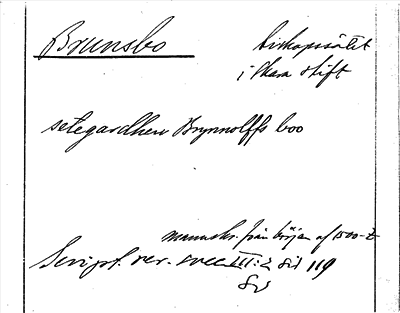 Brunsbo
biskopssätet
i Skara stift
setegardhen Brynnolffs boo
manuskr. från början af 1500-t.
Script. rer. svec. III: 2 sid 119